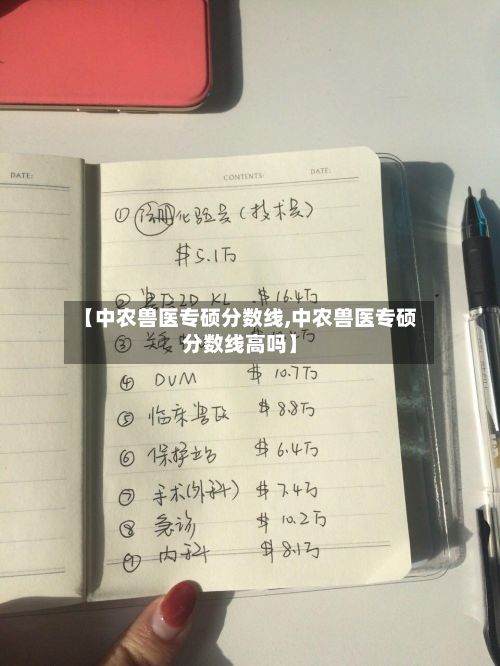 DATE:
CONTENTS:
DATE:
① 注册化验员(技术员)
$5.1万
② 兽医 $16.4万
【中农兽医专硕分数线,中农兽医专硕
分数线高吗】
③
④ DVM $10.7万
⑤ 临床兽医 $8.8万
⑥ $6.4万
⑦ 手术(外科) $7.4万
⑧ 急诊 $10.2万
⑨ 内科 $8.1万